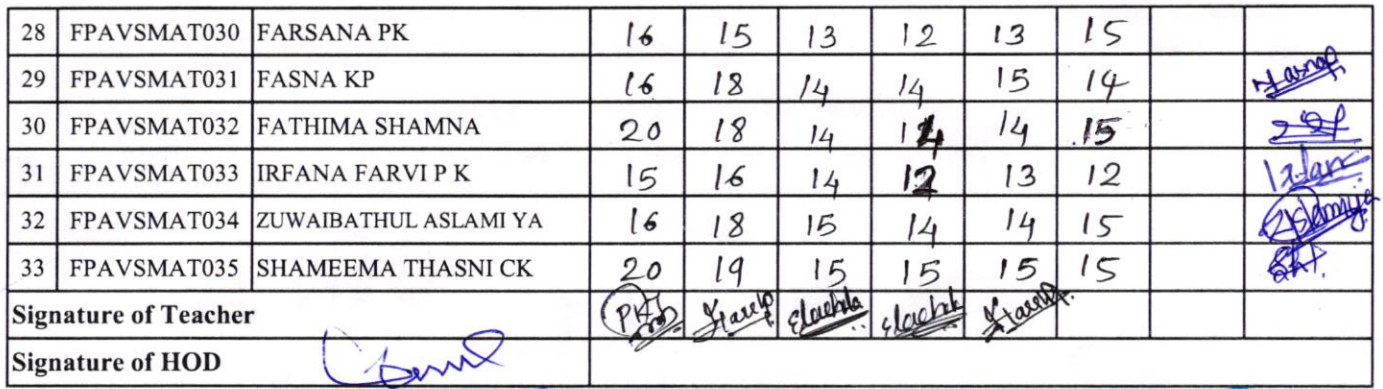 28 FPAVSMAT030 FARSANA PK 16 15 13 12 13 15
29 FPAVSMAT031 FASNA KP 16 18 14 14 15 14 Fasna
30 FPAVSMAT032 FATHIMA SHAMNA 20 18 14 14 14 15
31 FPAVSMAT033 IRFANA FARVI P K 15 16 14 12 13 12
32 FPAVSMAT034 ZUWAIBATHUL ASLAMI YA 16 18 15 14 14 15 Aslamiya
33 FPAVSMAT035 SHAMEEMA THASNI CK 20 19 15 15 15 15
Signature of Teacher
Signature of HOD